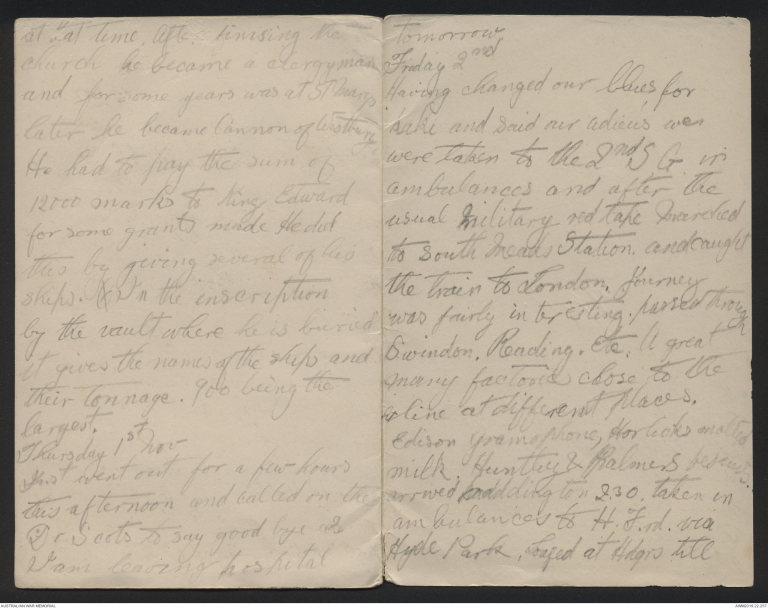 at that time. After finising the
church he became a clergyman
and for some years was at St Marys
later he became Cannon of Westbury.
He had to pay the sum of
12000 marks to King Edward
for some grants made He did
this by giving several of his
ships. In the inscription
by the vault where he is buried
it gives the names of the ships and
their tonnage. 900 being the
largest.
Thursday 1st Nov
Just went out for a few hours
this afternoon and called on the
Scots to say good bye as
I am leaving hospital
tomorrow
Friday 2nd
Having changed our blues for
kahki and said our adieus we
were taken to the 2nd S G in
ambulances and after the
usual military red tape
to South Meads Station. and caught
the train to London. Journey
was fairly interesting. passed through
Swindon, Reading. Etc. A great
many factories close to the
line at different places.
Edison gramophone, Horlicks malted
milk, Huntley & Palmers biscuits.
arrived Paddington 2.30. taken in
ambulances to H. F. rd. via
Hyde Park, at Hdqrs till
AUSTRALIAN WAR MEMORIAL